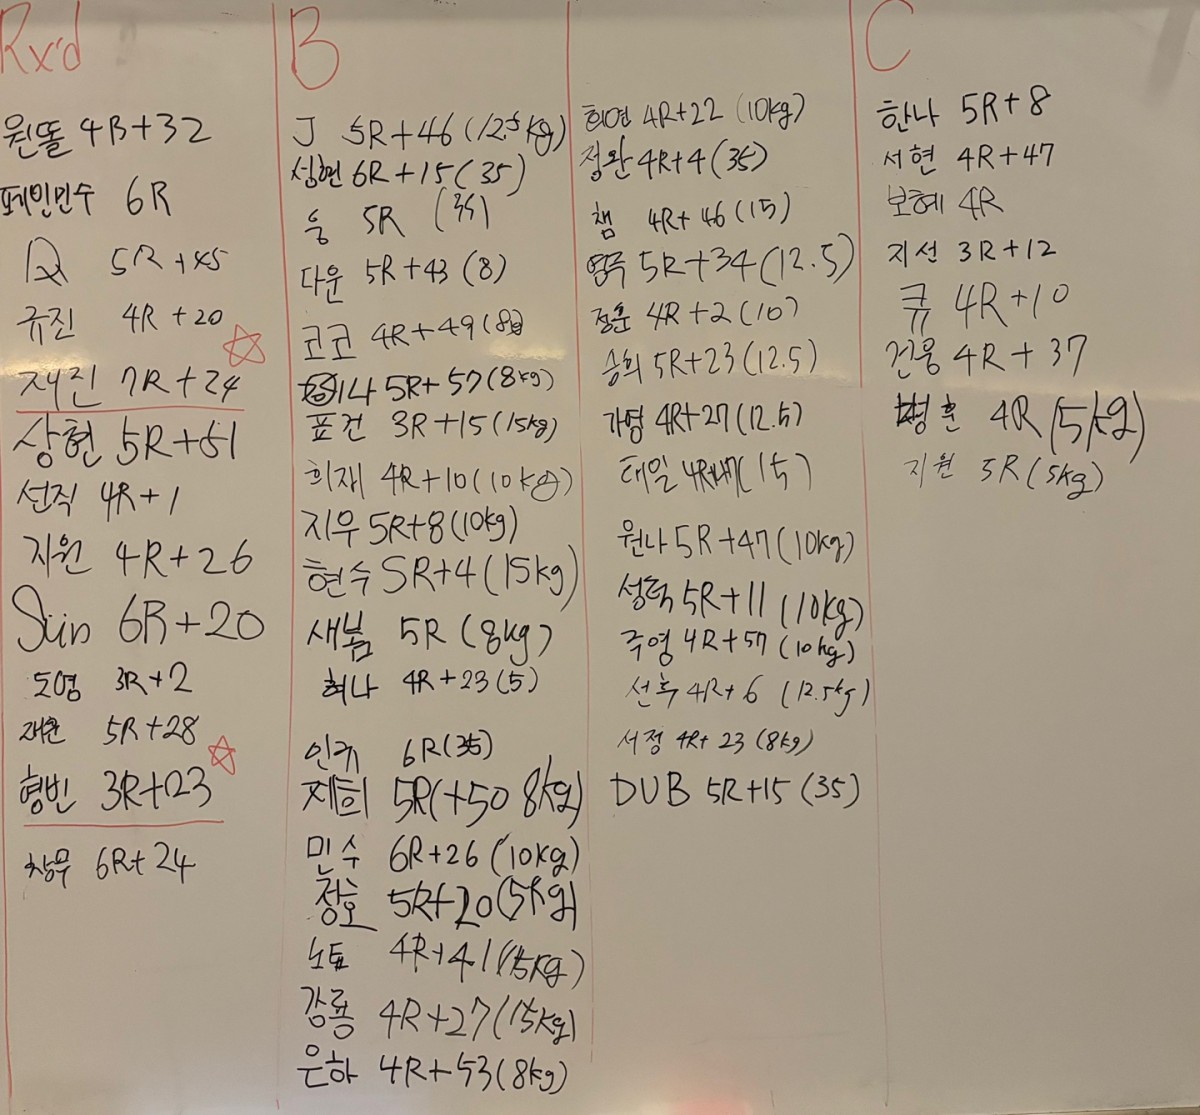 Rx'd
원똘 4R+32
페인민수 6R
Q 5R+45
규진 4R+20
재진 7R+24
상현 5R+51
선직 4R+1
지원 4R+26
Sun 6R+20
도영 3R+2
재환 5R+28
형빈 3R+23
창무 6R+24
B
J 5R+46(12.5kg)
성현 6R+15(35)
웅 5R (35)
다운 5R+43 (8)
코코 4R+49(8kg)
이나 5R+57(8kg)
표건 3R+15(15kg)
희재 4R+10(10kg)
지우 5R+8(10kg)
현수 5R+4(15kg)
새봄 5R (8kg)
혜나 4R+23(5)
인규 6R(35)
제희 5R(+50 8kg)
민수 6R+26(10kg)
청호 5R+20(5kg)
노토 4R+41(15kg)
강룡 4R+27(15kg)
은하 4R+53(8kg)
희연 4R+22 (10kg)
정완 4R+4(35)
챔 4R+46(15)
영주 5R+34(12.5)
정훈 4R+2(10)
승희 5R+23(12.5)
가영 4R+27(12.5)
태일 (15)
원나 5R+47(10kg)
성덕 5R+11(10kg)
주영 4R+57(10kg)
선후 4R+6 (12.5kg)
서정 4R+23(8kg)
DUB 5R+15 (35)
C
한나 5R+8
서현 4R+47
보혜 4R
지선 3R+12
큐 4R+10
건웅 4R+37
병훈 4R(5kg)
지원 5R(5kg)